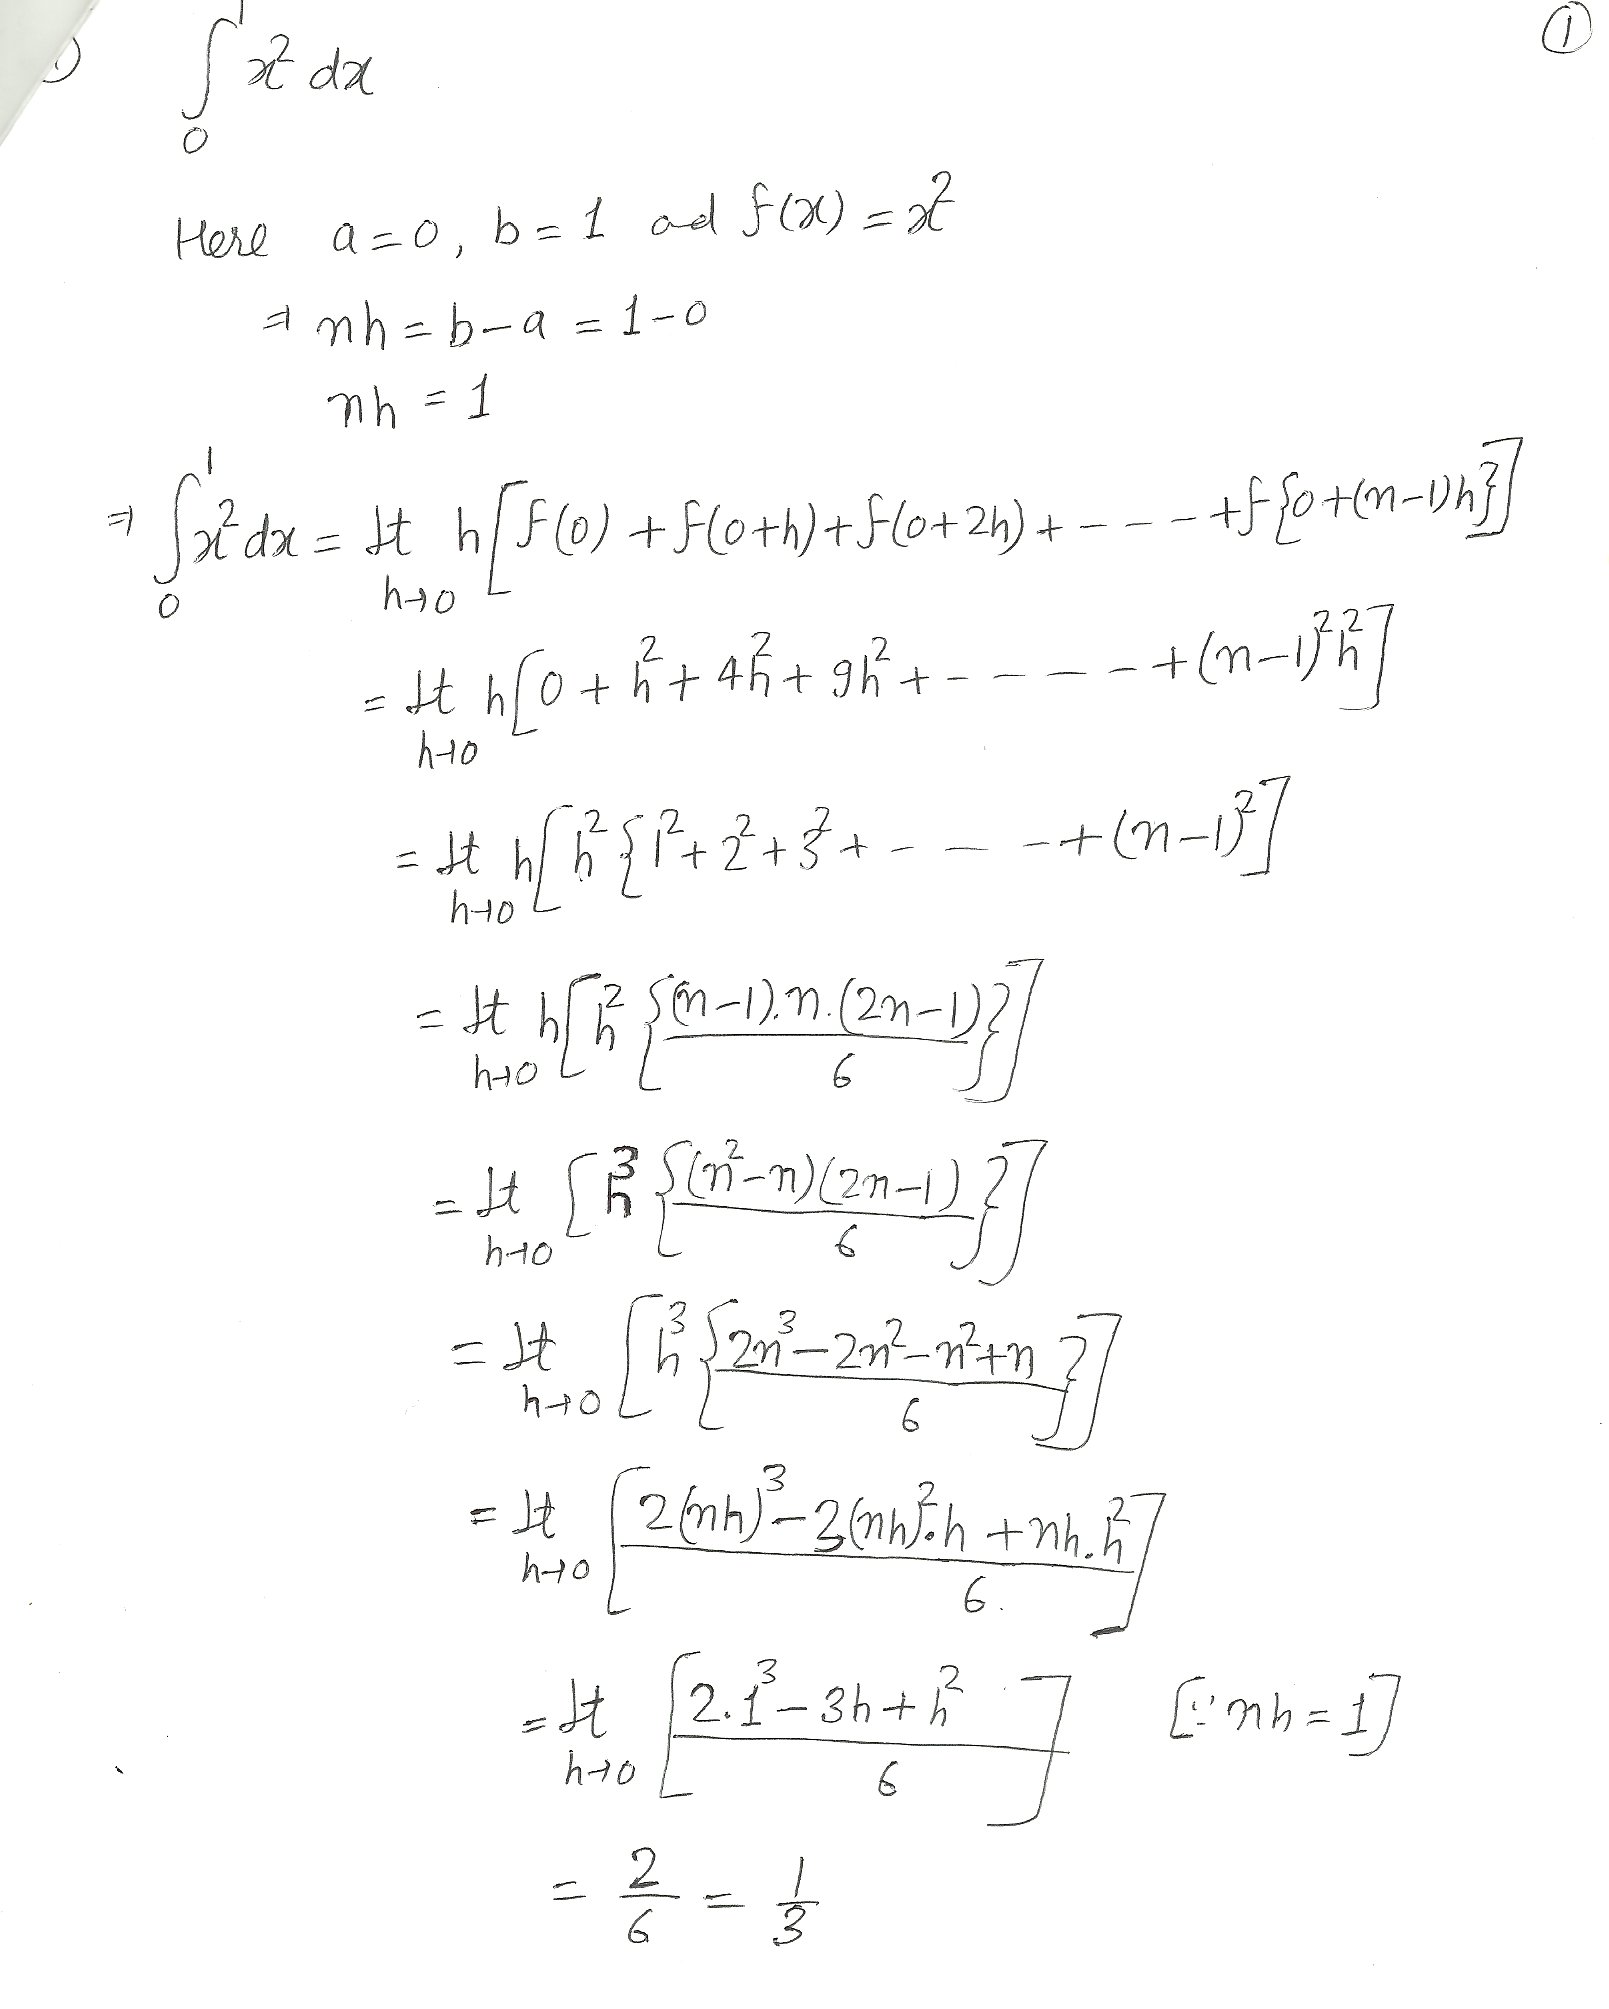 ①
∫₀¹ x² dx
Here a=0, b=1 and f(x) = x²
⇒ nh = b-a = 1-0
nh = 1
⇒ ∫₀¹ x² dx = lt h→0 h[f(0) + f(0+h) + f(0+2h) + - - - - +f{0+(n-1)h}]
= lt h→0 h[0 + h² + 4h² + 9h² + - - - - - +(n-1)²h²]
= lt h→0 h[h²{1² + 2² + 3² + - - - +(n-1)²]
= lt h→0 h[h²{(n-1).n.(2n-1)/6}]
= lt h→0 [h³{(n²-n)(2n-1)/6}]
= lt h→0 [h³{2n³-2n²-n²+n/6}]
= lt h→0 [2(nh)³-3(nh)².h +nh.h²/6.]
= lt h→0 [2.1³-3h+h²/6] [∵ nh=1]
= 2/6 = 1/3